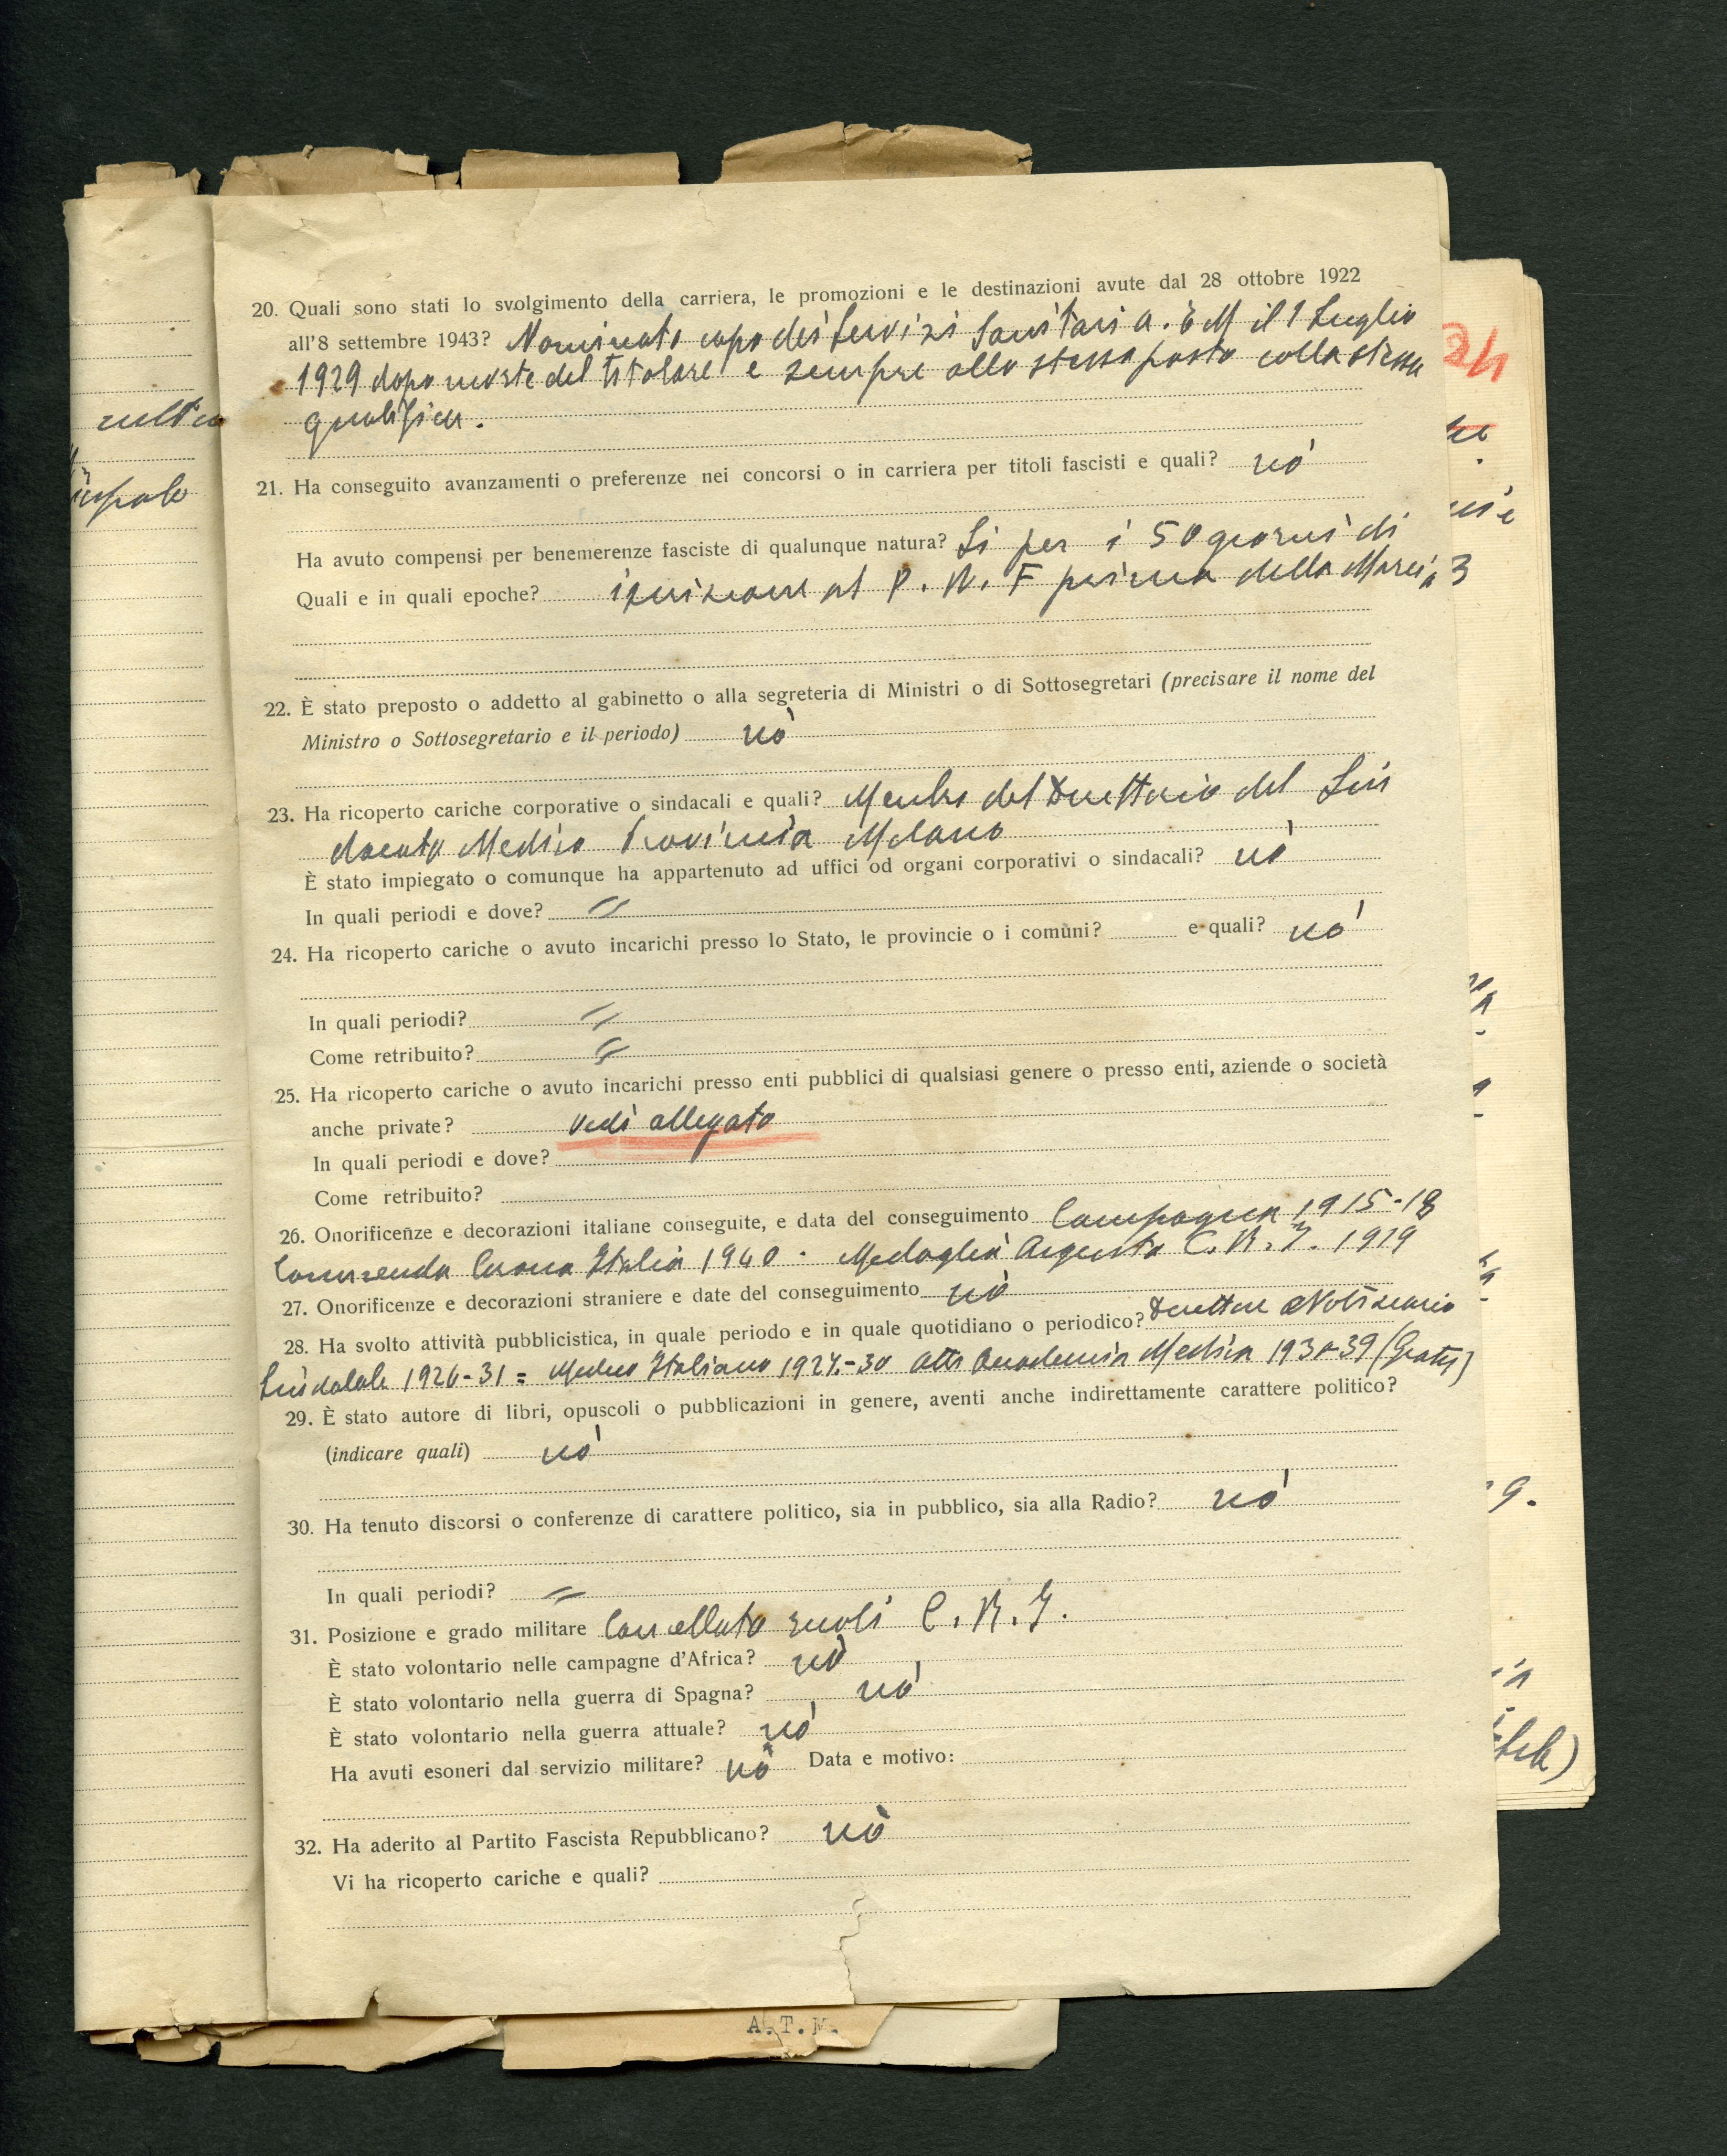 20. Quali sono stati lo svolgimento della carriera, le promozioni e le destinazioni avute dal 28 ottobre 1922
all'8 settembre 1943? Nominato capo dei Servizi Sanitari A. E M il 1 Luglio
1929 dopo morte del titolare e sempre allo stesso posto colla stessa
qualifica.
21. Ha conseguito avanzamenti o preferenze nei concorsi o in carriera per titoli fascisti e quali? nò
Ha avuto compensi per benemerenze fasciste di qualunque natura? Si per i 50 giorni di
Quali e in quali epoche? iscrizione al P. N. F prima della Marcia
22. È stato preposto o addetto al gabinetto o alla segreteria di Ministri o di Sottosegretari (precisare il nome del
Ministro o Sottosegretario e il periodo) nò
23. Ha ricoperto cariche corporative o sindacali e quali? Membro del Direttorio del Sin
dacato Medico Provincia Milano
È stato impiegato o comunque ha appartenuto ad uffici od organi corporativi o sindacali? nò
In quali periodi e dove? =
24. Ha ricoperto cariche o avuto incarichi presso lo Stato, le provincie o i comuni? e quali? nò
In quali periodi? =
Come retribuito? =
25. Ha ricoperto cariche o avuto incarichi presso enti pubblici di qualsiasi genere o presso enti, aziende o società
anche private? vedi allegato
In quali periodi e dove?
Come retribuito?
26. Onorificenze e decorazioni italiane conseguite, e data del conseguimento Campagna 1915-18
Commenda Corona Italia 1940 - Medaglia Argento C. R. I. 1919
27. Onorificenze e decorazioni straniere e date del conseguimento nò
28. Ha svolto attività pubblicistica, in quale periodo e in quale quotidiano o periodico? Direttore Notiziario
Sindacale 1926-31 = Medico Italiano 1927-30 Atti Accademia Medica 1930-39 (Gratis)
29. È stato autore di libri, opuscoli o pubblicazioni in genere, aventi anche indirettamente carattere politico?
(indicare quali) nò
30. Ha tenuto discorsi o conferenze di carattere politico, sia in pubblico, sia alla Radio? nò
In quali periodi? =
31. Posizione e grado militare Cancellato ruoli C. R. I.
È stato volontario nelle campagne d'Africa? nò
È stato volontario nella guerra di Spagna? nò
È stato volontario nella guerra attuale? nò
Ha avuti esoneri dal servizio militare? nò Data e motivo:
32. Ha aderito al Partito Fascista Repubblicano? nò
Vi ha ricoperto cariche e quali?
A.T.M.